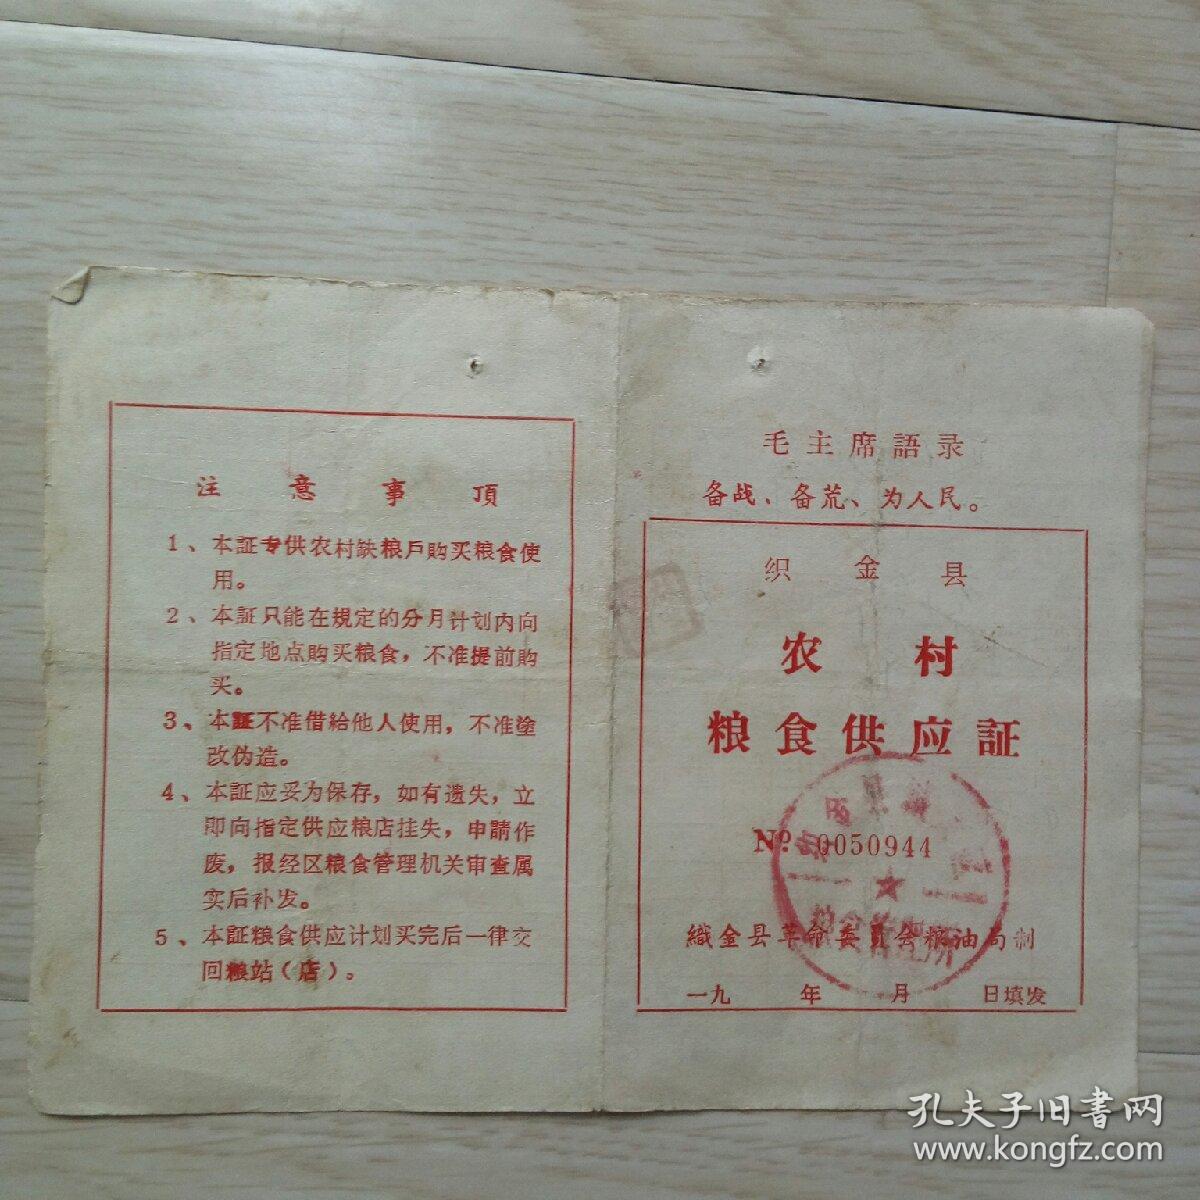 注意事項
1、本証专供农村缺粮戶購买粮食使
用。
2、本証只能在規定的分月计划内向
指定地点購买粮食，不准提前购
买。
3、本証不准借給他人使用，不准塗
改伪造。
4、本証应妥为保存，如有遗失，立
即向指定供应粮店挂失，申請作
废，报经区粮食管理机关审查属
实后补发。
5、本証粮食供应计划买完后一律交
回粮站（店）。
毛主席語录
备战、备荒、为人民。
织金县
农村
粮食供应証
№ 0050944
織金县革命委員会粮油局制
一九 年 月 日填发
粮食管理所
孔夫子旧書网
www.kongfz.com